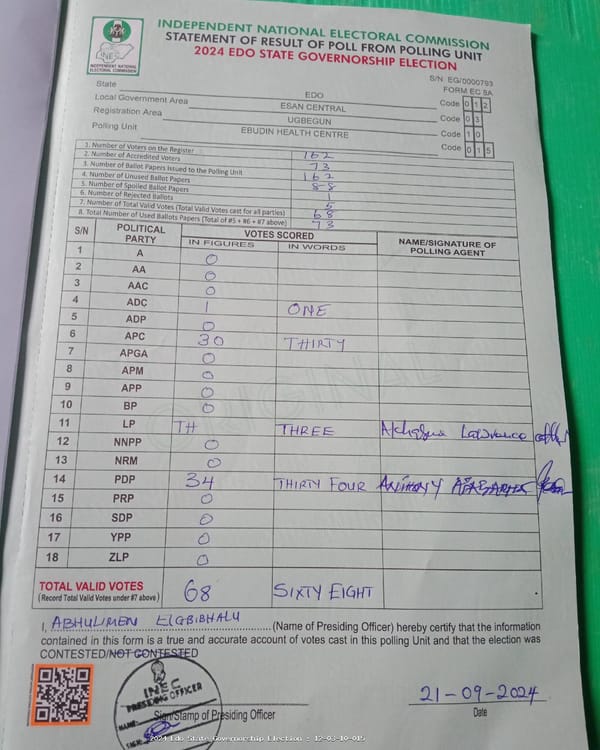 INDEPENDENT NATIONAL ELECTORAL COMMISSION
STATEMENT OF RESULT OF POLL FROM POLLING UNIT
2024 EDO STATE GOVERNORSHIP ELECTION
INEC
INDEPENDENT NATIONAL ELECTORAL COMMISSION
S/N EG/0000793
FORM EC 8A
State EDO Code 0 1 2
Local Government Area ESAN CENTRAL Code 0 3
Registration Area UGBEGUN Code 1 0
Polling Unit EBUDIN HEALTH CENTRE Code 0 1 5
1. Number of Voters on the Register 162
2. Number of Accredited Voters 73
3. Number of Ballot Papers Issued to the Polling Unit 162
4. Number of Unused Ballot Papers 88
5. Number of Spoiled Ballot Papers
6. Number of Rejected Ballots 5
7. Number of Total Valid Votes (Total Valid Votes cast for all parties) 68
8. Total Number of Used Ballots Papers (Total of #5 + #6 + #7 above) 73
S/N POLITICAL PARTY VOTES SCORED NAME/SIGNATURE OF POLLING AGENT
IN FIGURES IN WORDS
1 A 0
2 AA 0
3 AAC 0
4 ADC 1 ONE
5 ADP 0
6 APC 30 THIRTY
7 APGA 0
8 APM 0
9 APP 0
10 BP 0
11 LP TH THREE
12 NNPP 0
13 NRM 0
14 PDP 34 THIRTY FOUR
15 PRP 0
16 SDP 0
17 YPP 0
18 ZLP 0
TOTAL VALID VOTES 68 SIXTY EIGHT
(Record Total Valid Votes under #7 above)
I, ABHULIMEN (Name of Presiding Officer) hereby certify that the information
contained in this form is a true and accurate account of votes cast in this polling Unit and that the election was
CONTESTED/NOT CONTESTED
INEC
PRESIDING OFFICER
NAME:
SIGN:
Sign/Stamp of Presiding Officer
21-09-2024
Date
2024 Edo State Governorship Election - 12-03-10-015